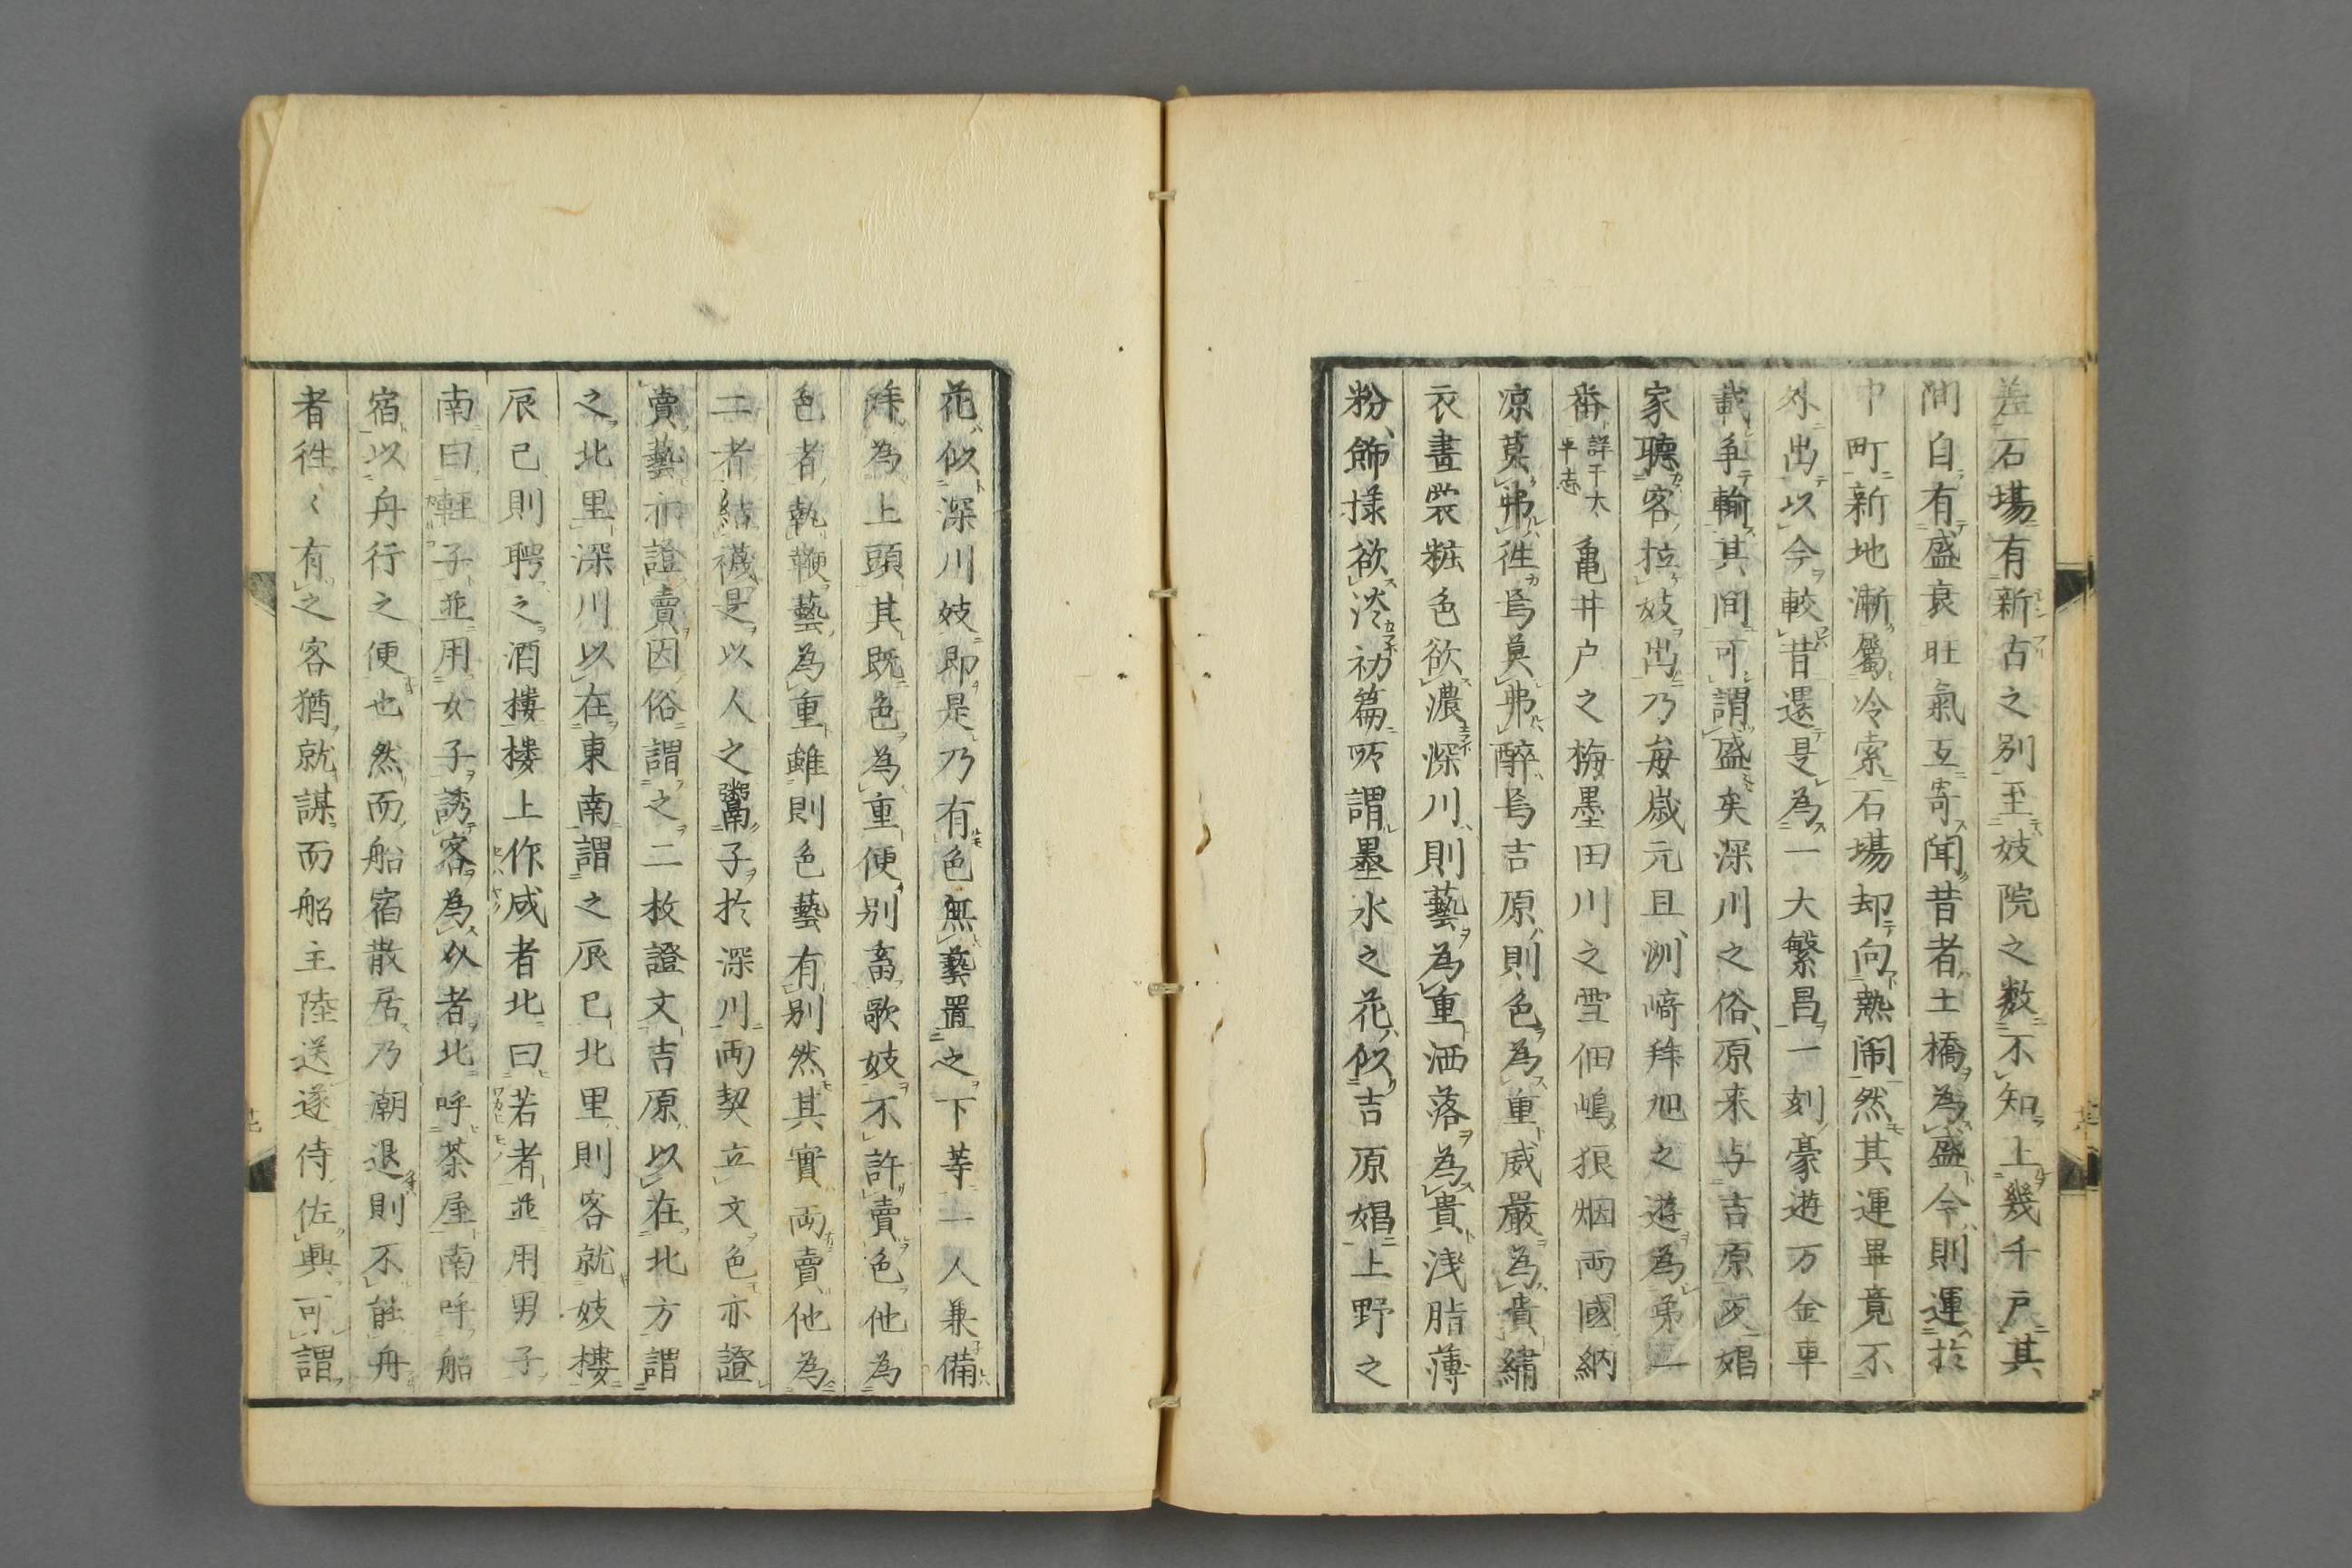 差石場有新古之別至妓院之数不知上幾千戸其
間自有盛衰旺氣互寄聞昔者土橋為盛今則運於
中町新地漸屬冷索石場却向熱鬧然其運畢竟不
外出以今較昔還是為一大繁昌一刻豪遊万金車
載争輸其間可謂盛矣深川之俗原来与吉原反娼
家聴客拉妓出乃毎歳元旦洲﨑拜旭之遊為第一
番詳于太平志亀井戸之梅墨田川之雪佃嶋狼烟両國納
凉莫弗徃焉莫弗醉焉吉原則色為重威嚴為貴繡
衣畫裳粧色欲濃深川則藝為重洒落為貴浅脂薄
粉飾様欲淡初篇所謂墨水之花似吉原娼上野之
花似深川妓即是乃有色無藝置之下等一人兼備
拜為上頭其既色為重便別畜歌妓不許賣色他為
色者執鞭藝為重雖則色藝有別然其實両賣他為
二者結襪是以人之鬻子於深川両契立文色亦證
賣藝亦證賣因俗謂之二枚證文吉原以在北方謂
之北里深川以在東南謂之辰巳北里則客就妓樓
辰已則聘之酒樓楼上作咸者北曰若者並用男子
南曰輕子並用女子誘客為以者北呼茶屋南呼船
宿以舟行之便也然而船宿散居乃潮退則不能舟
者徃〻有之客猶就謀而船主陸送遂侍佐興可謂